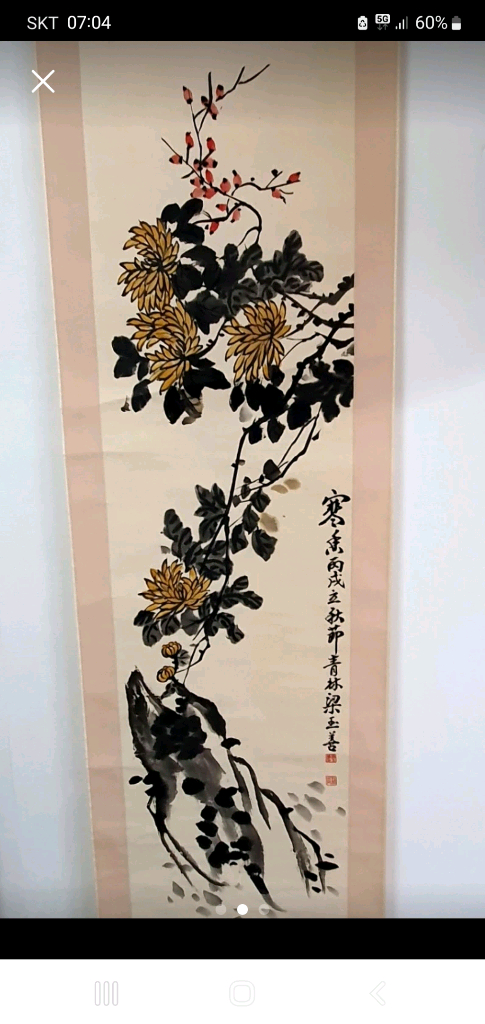 SKT 07:04
5G
60%
寒香丙戌立秋節青林梁玉善